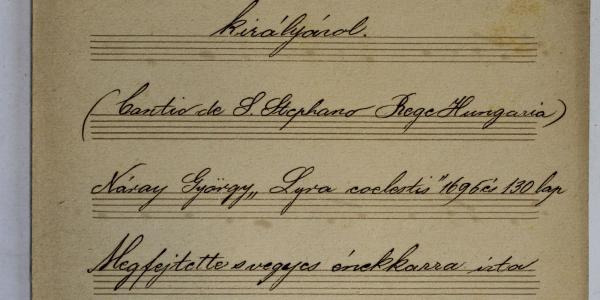 királyáról.
(Cantio de S. Stephano Rege Hungaria)
Náray György „Lyra coelestis" 1695és 130 lap
Megfejtette s vegyes énekkarra írta